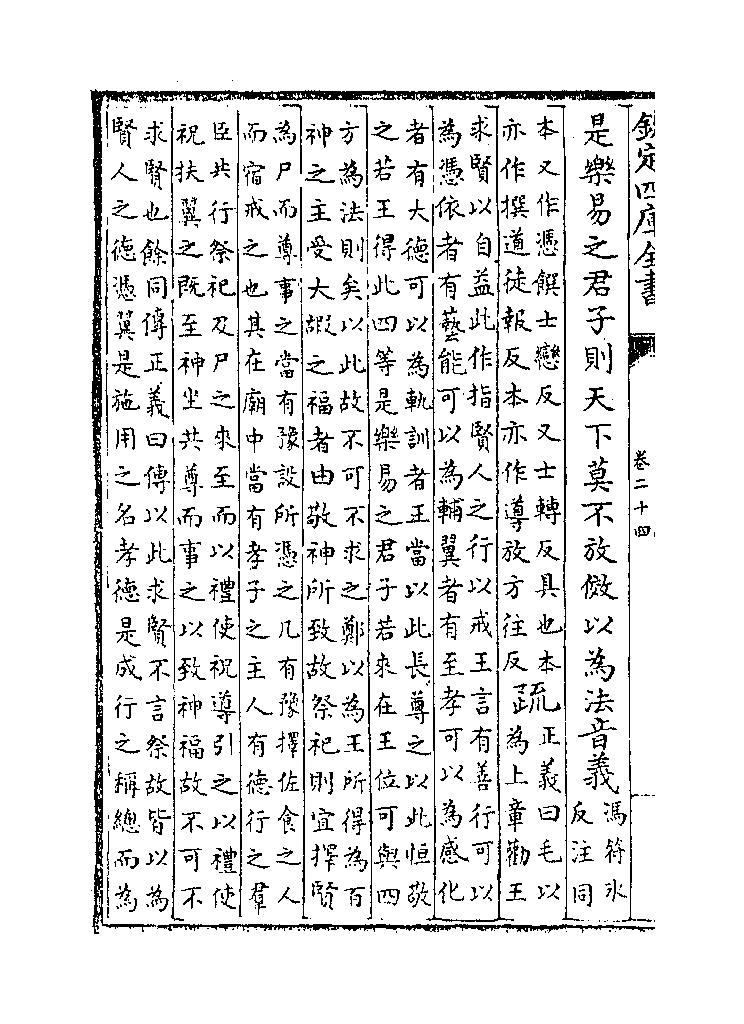 欽定四庫全書
卷二十四
是樂易之君子則天下莫不放傚以為法音義
馮符冰
反注同
本又作憑饌士戀反又士轉反具也本
亦作撰道徒報反本亦作導放方往反
疏
正義曰毛以
為上章勸王
求賢以自益此作指賢人之行以戒王言有善行可以
為憑依者有藝能可以為輔翼者有至孝可以為感化
者有大德可以為軌訓者王當以此長尊之以此恒敬
之若王得此四等是樂易之君子若來在王位可與四
方為法則矣以此故不可不求之鄭以為王所得為百
神之主受大嘏之福者由敬神所致故祭祀則宜擇賢
為尸而尊事之當有豫設所憑之几有豫擇佐食之人
而宿戒之也其在廟中當有孝子之主人有德行之羣
臣共行祭祀及尸之來至而以禮使祝導引之以禮使
祝扶翼之既至神坐共尊而事之以致神福故不可不
求賢也餘同傳正義曰傳以此求賢不言祭故皆以為
賢人之德憑翼是施用之名孝德是成行之稱總而為